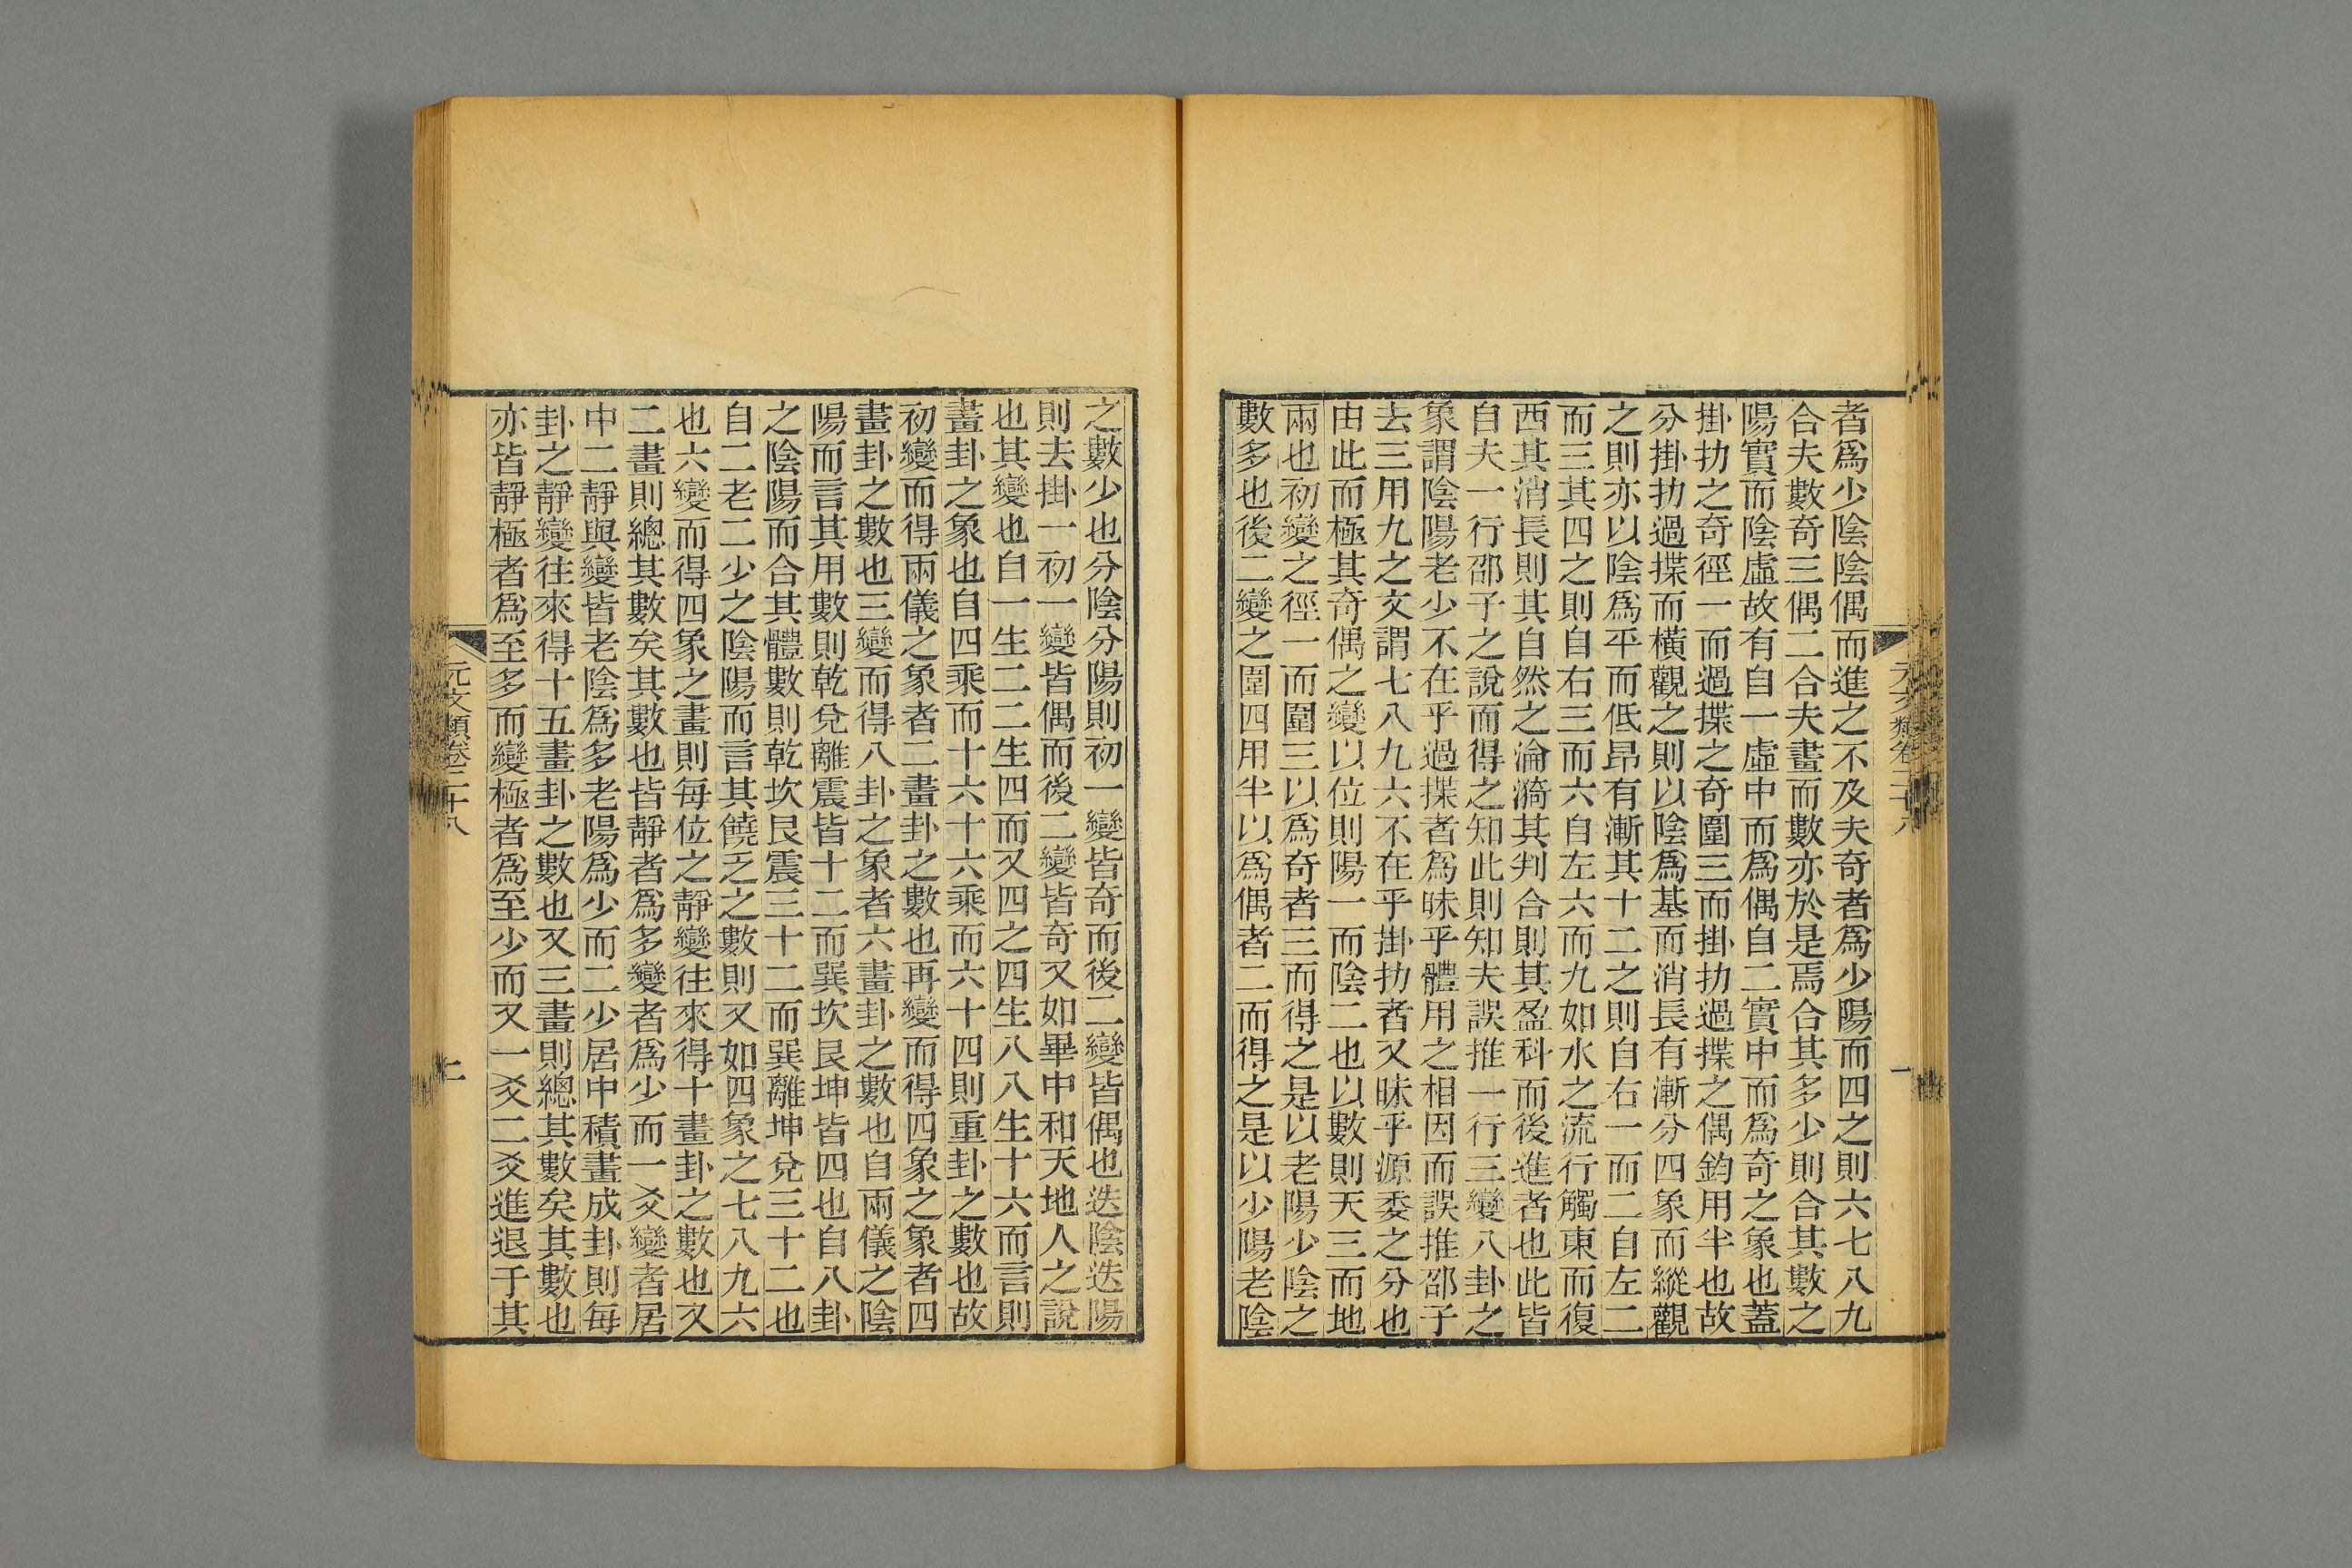 者爲少陰陰偶而進之不及夫奇者爲少陽而四之則六七八九
合夫數奇三偶二合夫畫而數亦於是焉合其多少則合其數之
陽實而陰虛故有自一虛中而爲偶自二實中而爲奇之象也蓋
掛扐之奇徑一而過揲之奇圍三而掛扐過揲之偶鈞用半也故
分掛扐過揲而橫觀之則以陰爲基而消長有漸分四象而縱觀
之則亦以陰爲平而低昂有漸其十二之則自右一而二自左二
而三其四之則自右三而六自左六而九如水之流行觸東而復
西其消長則其自然之淪漪其判合則其盈科而後進者也此皆
自夫一行邵子之說而得之知此則知夫誤推一行三變八卦之
象謂陰陽老少不在乎過揲者爲昧乎體用之相因而誤推邵子
去三用九之文謂七八九六不在乎掛扐者又昧乎源委之分也
由此而極其奇偶之變以位則陽一而陰二也以數則天三而地
兩也初變之徑一而圍三以爲奇者三而得之是以老陽少陰之
數多也後二變之圍四用半以爲偶者二而得之是以少陽老陰
元文類卷三十八
一
之數少也分陰分陽則初一變皆奇而後二變皆偶也迭陰迭陽
則去掛一初一變皆偶而後二變皆奇又如畢中和天地人之說
也其變也自一生二二生四而又四之四生八八生十六而言則
畫卦之象也自四乘而十六十六乘而六十四則重卦之數也故
初變而得兩儀之象者二畫卦之數也再變而得四象之象者四
畫卦之數也三變而得八卦之象者六畫卦之數也自兩儀之陰
陽而言其用數則乾兌離震皆十二而巽坎艮坤皆四也自八卦
之陰陽而合其體數則乾坎艮震三十二而巽離坤兌三十二也
自二老二少之陰陽而言其饒乏之數則又如四象之七八九六
也六變而得四象之畫則每位之靜變往來得十畫卦之數也又
二畫則總其數矣其數也皆靜者爲多變者爲少而一爻變者居
中二靜與變皆老陰爲多老陽爲少而二少居中積畫成卦則每
卦之靜變往來得十五畫卦之數也又三畫則總其數矣其數也
亦皆靜極者爲至多而變極者爲至少而又一爻二爻進退于其
元文類卷三十八
二